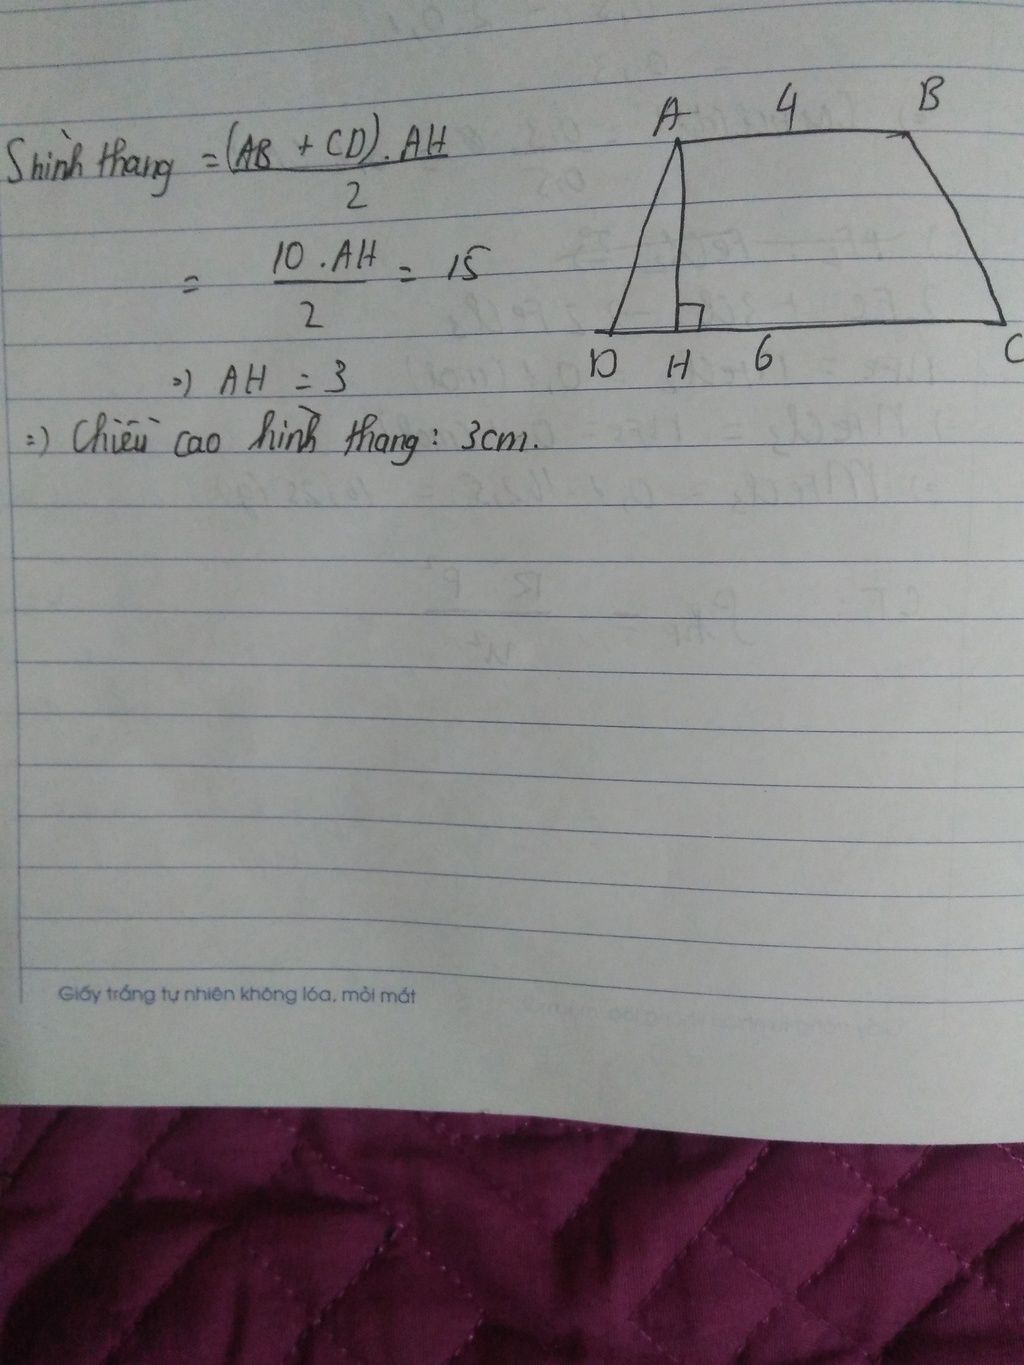 S hình thang = (AB + CD). AH
2
= 10 . AH = 15
2
=) AH = 3
=) Chiều cao hình thang: 3cm.
A 4 B
D H 6 C
Giấy trắng tự nhiên không lóa, mỏi mắt